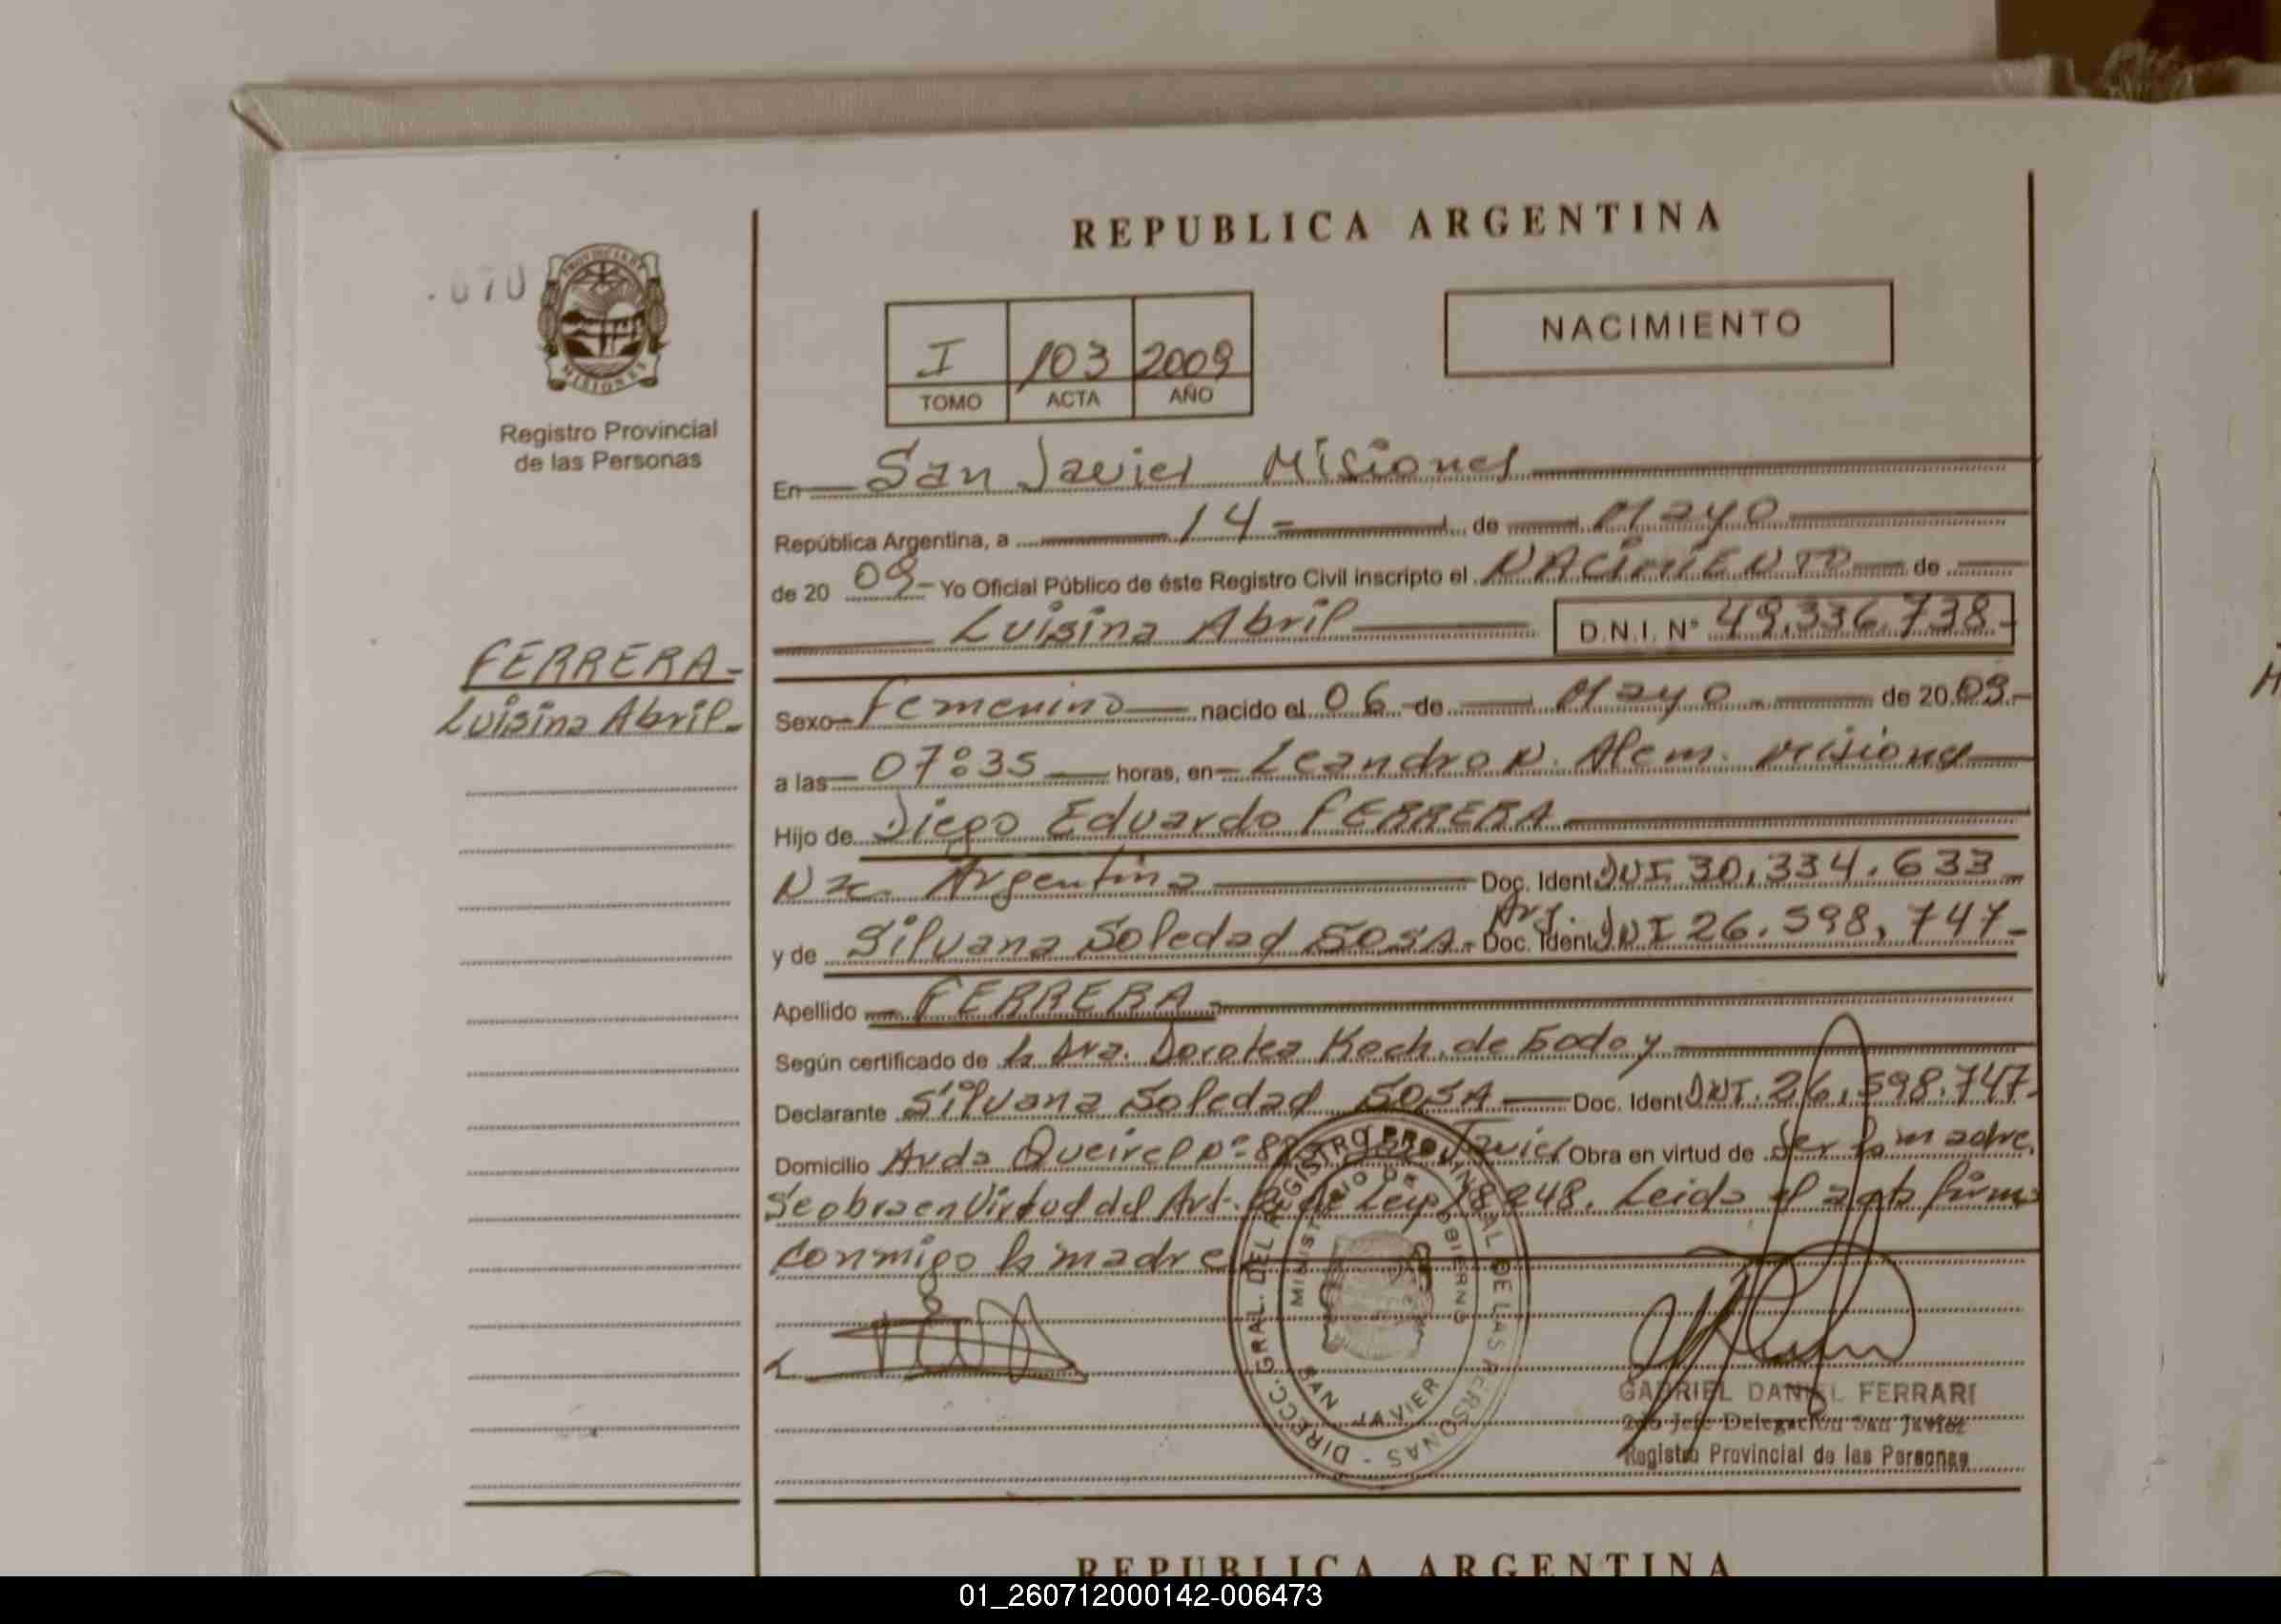 REPUBLICA ARGENTINA
070
PROVINCIA DE
MISIONES
Registro Provincial
de las Personas
I 103 2009
TOMO ACTA AÑO
NACIMIENTO
En San Javier Misiones
República Argentina, a 14 de Mayo
de 20 09 - Yo Oficial Público de éste Registro Civil inscripto el NACIMIENTO de
Luisina Abril D.N.I. Nº 49.336.738.-
FERRERA-
Luisina Abril-
Sexo Femenino nacido el 06 de Mayo de 20 09.-
a las 07:35 horas, en Leandro N. Alem. Misiones
Hijo de Diego Eduardo FERRERA
Nac. Argentina Doc. Ident DNI 30.334.633
Arg.
y de Silvana Soledad SOSA - Doc. Ident DNI 26.598.747-
Apellido FERRERA-
Según certificado de la Dra. Dorotea Koch de Godoy
Declarante Silvana Soledad SOSA Doc. Ident DNI. 26.598.747-
Domicilio Avda Queirel Nº Javier Obra en virtud de Ser la madre.
Se obra en Virtud del Art. Ley 18248. Leida el acta firma
conmigo la madre
DIRECC. GRAL. DEL REGISTRO PROVINCIAL DE LAS PERSONAS -
MINISTERIO DE GOBIERNO
SAN JAVIER
GABRIEL DANIEL FERRARI
2do Jefe Delegación San Javier
Registro Provincial de las Personas
REPUBLICA ARGENTINA
01_260712000142-006473